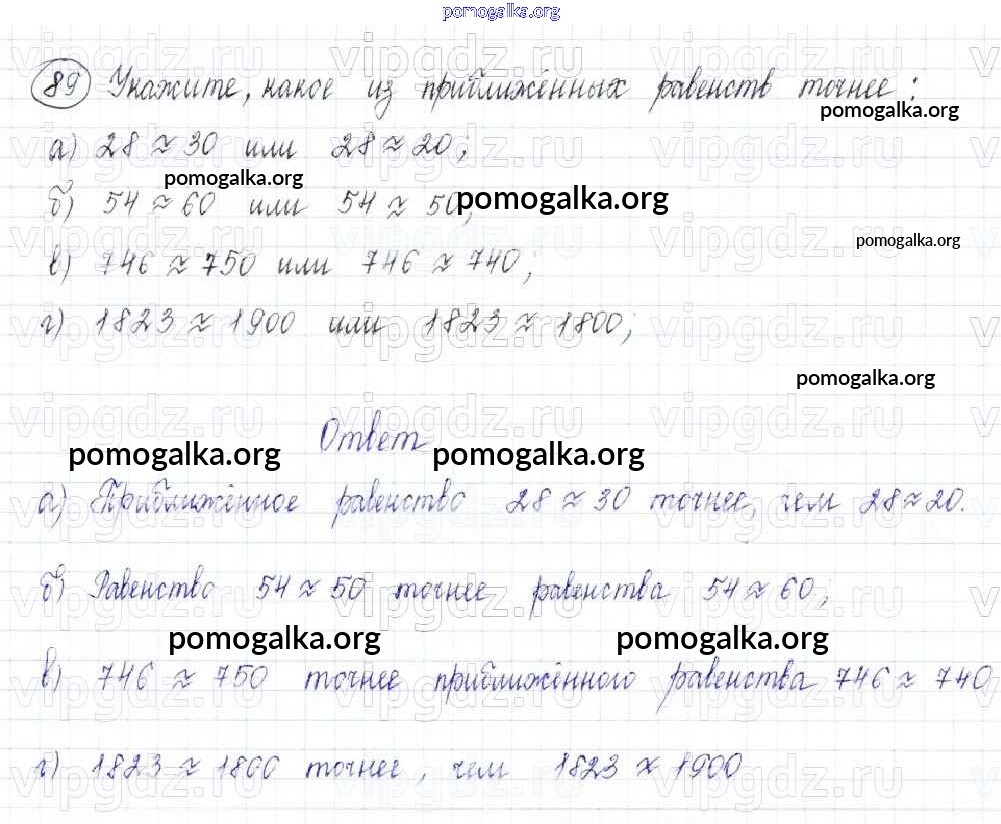 pomogalka.org
89 Укажите, какое из приближённых равенств точнее:
pomogalka.org
а) 28 ≈ 30 или 28 ≈ 20;
pomogalka.org
б) 54 ≈ 60 или 54 ≈ 50;
pomogalka.org
pomogalka.org
в) 746 ≈ 750 или 746 ≈ 740;
г) 1823 ≈ 1900 или 1823 ≈ 1800;
pomogalka.org
Ответ
pomogalka.org pomogalka.org
а) Приближённое равенство 28 ≈ 30 точнее, чем 28 ≈ 20.
б) Равенство 54 ≈ 50 точнее равенства 54 ≈ 60;
pomogalka.org pomogalka.org
в) 746 ≈ 750 точнее приближённого равенства 746 ≈ 740
г) 1823 ≈ 1800 точнее, чем 1823 ≈ 1900
vipgdz.ru